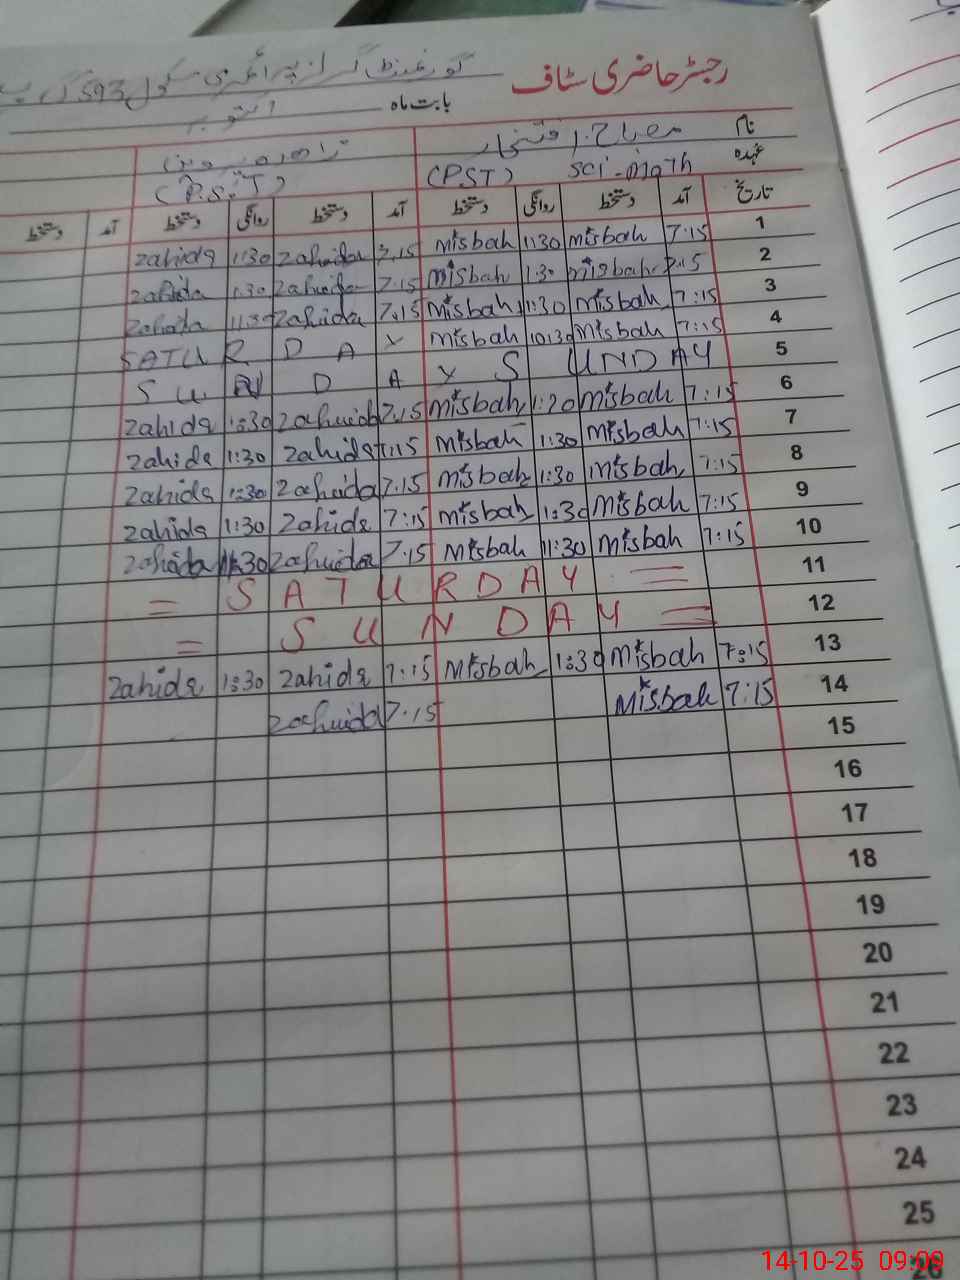 رجسٹر حاضری سٹاف گورنمنٹ گرلز پرائمری سکول 593 گ ب
بابت ماہ اکتوبر
نام مصباح افتخار زاہدہ پروین
عہدہ sci-math (PST) (P.S.T)
تاریخ آمد دستخط روانگی دستخط آمد دستخط روانگی دستخط آمد دستخط
1 7:15 misbah 1:30 misbah 7.15 zahida 1:30 zahida
2 7:15 misbah 1:30 misbah 7.15 zahida 1:30 zahida
3 7:15 misbah 1:30 misbah 7.15 zahida 11:30 zahida
4 7:15 misbah 10:30 misbah SATURDAY
5 SUNDAY SUNDAY
6 7:15 misbah 1:30 misbah 7.15 zahida 1:30 zahida
7 7:15 misbah 1:30 misbah 7:15 zahida 1:30 zahida
8 7:15 misbah 1:30 misbah 7.15 zahida 1:30 zahida
9 7:15 misbah 1:30 misbah 7:15 zahida 1:30 zahida
10 7:15 misbah 11:30 misbah 7.15 zahida 11:30 zahida
11 = SATURDAY =
12 = SUNDAY =
13 7:15 misbah 1:30 misbah 7:15 zahida 1:30 zahida
14 7:15 misbah 7:15 zahida
15
16
17
18
19
20
21
22
23
24
25
26
14-10-25 09:09